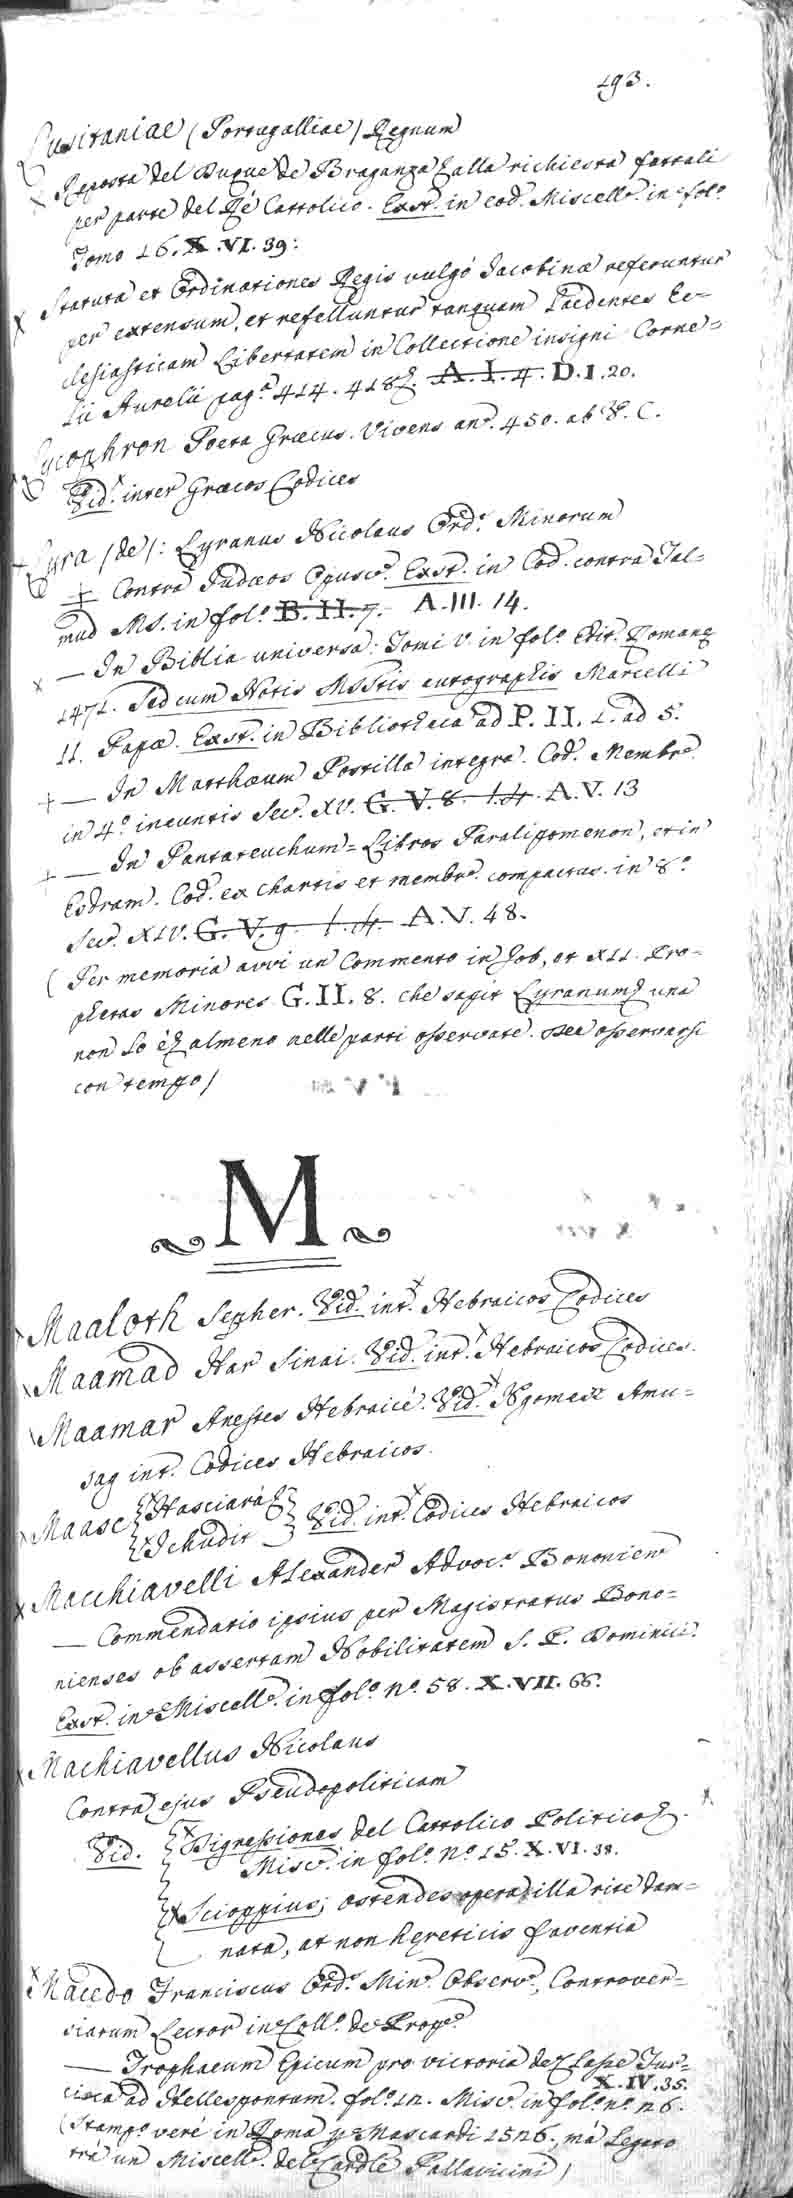 193.
Lusitaniae (Portugalliae) Regnum
x Risposta del Duque de Braganza alla richiesta fattali
per parte del Ré Cattolico. Exst. in cod. Miscell. in fol.º
Tomo 16. X.VI.39:
x Statuta et Ordinationes Regis vulgó Jacobinae referuntur
per extensum, et refelluntur tanquam Laedentes Ec=
clesiasticam Libertatem in Collectione insigni Corne=
lii Aurelii pag.ª 414. 418. A.I.4. D.I.20.
Lycophron Poeta Graecus. Vivens an.º 450. ab V.C.
Vid. inter Graecos Codices
Lyra (de): Lyranus Nicolaus Ord.s Minorum
+ Contra Judaeos Opusc.m Exst. in Cod. contra Tal=
mud MS. in fol.º B.II.7. A.III.14.
x — In Biblia universa: Tomi V. in fol.º Edit. Romanae
1471. Sed cum Notis MSStis autographis Marcelli
II. Papae. Exst. in Bibliotheca ad P.II.1. ad 5.
+ — In Matthaeum Postilla integra. Cod. Membr.
in 4.º ineuntis Sec. XV. G.V.8. A.V.13
+ — In Pantateuchum = Libros Paralipomenon, et in
Esdram. Cod. ex chartis et membr. compactus. in 8.º
Sec. XIV. G.V.9. A.V.48.
(Per memoria avvi un Commento in Job, et XII. Pro=
phetas Minores G.II.8. che sapit Lyranum una
non lo é almeno nelle parti osservate. osservarsi
con tempo)
M
Maaloth Sepher. Vid. int. Hebraicos Codices
Maamad Har Sinai. Vid. int. Hebraicos Codices.
Maamar Anestes Hebraicé. Vid. Amu=
sag int. Codices Hebraicos.
Maase { Hasciará
Jehudit } Vid. int. Codices Hebraicos
x Macchiavelli Alexander Advoc.s Bononien
— Commendatio ipsius per Magistratus Bono=
nienses ob assertam Nobilitatem S. P. Dominici.
Exst. in Miscell. in fol.º n.º 58. X.VII.66.
x Machiavellus Nicolaus
Contra ejus Pseudopoliticam
Vid. { Digressiones del Cattolico Politico.
Misc. in fol.º n.º 15. X.VI.38.
Scioppius; ostendes opera illa rite dam=
nata, at non haereticis faventia
x Macedo Franciscus Ord.s Min. Observ., Controver=
siarum Lector in Coll.º de Prop.
— Trophaeum Epicum pro victoria de Classe Tur=
X.IV.35.
cica ad Hellespontum. fol.º in. Misc. in fol.º n.º 26.
(Stamp.º veré in Roma p. Mascardi 1526., má legato
trá un Miscell. del Cardle Pallavicini)